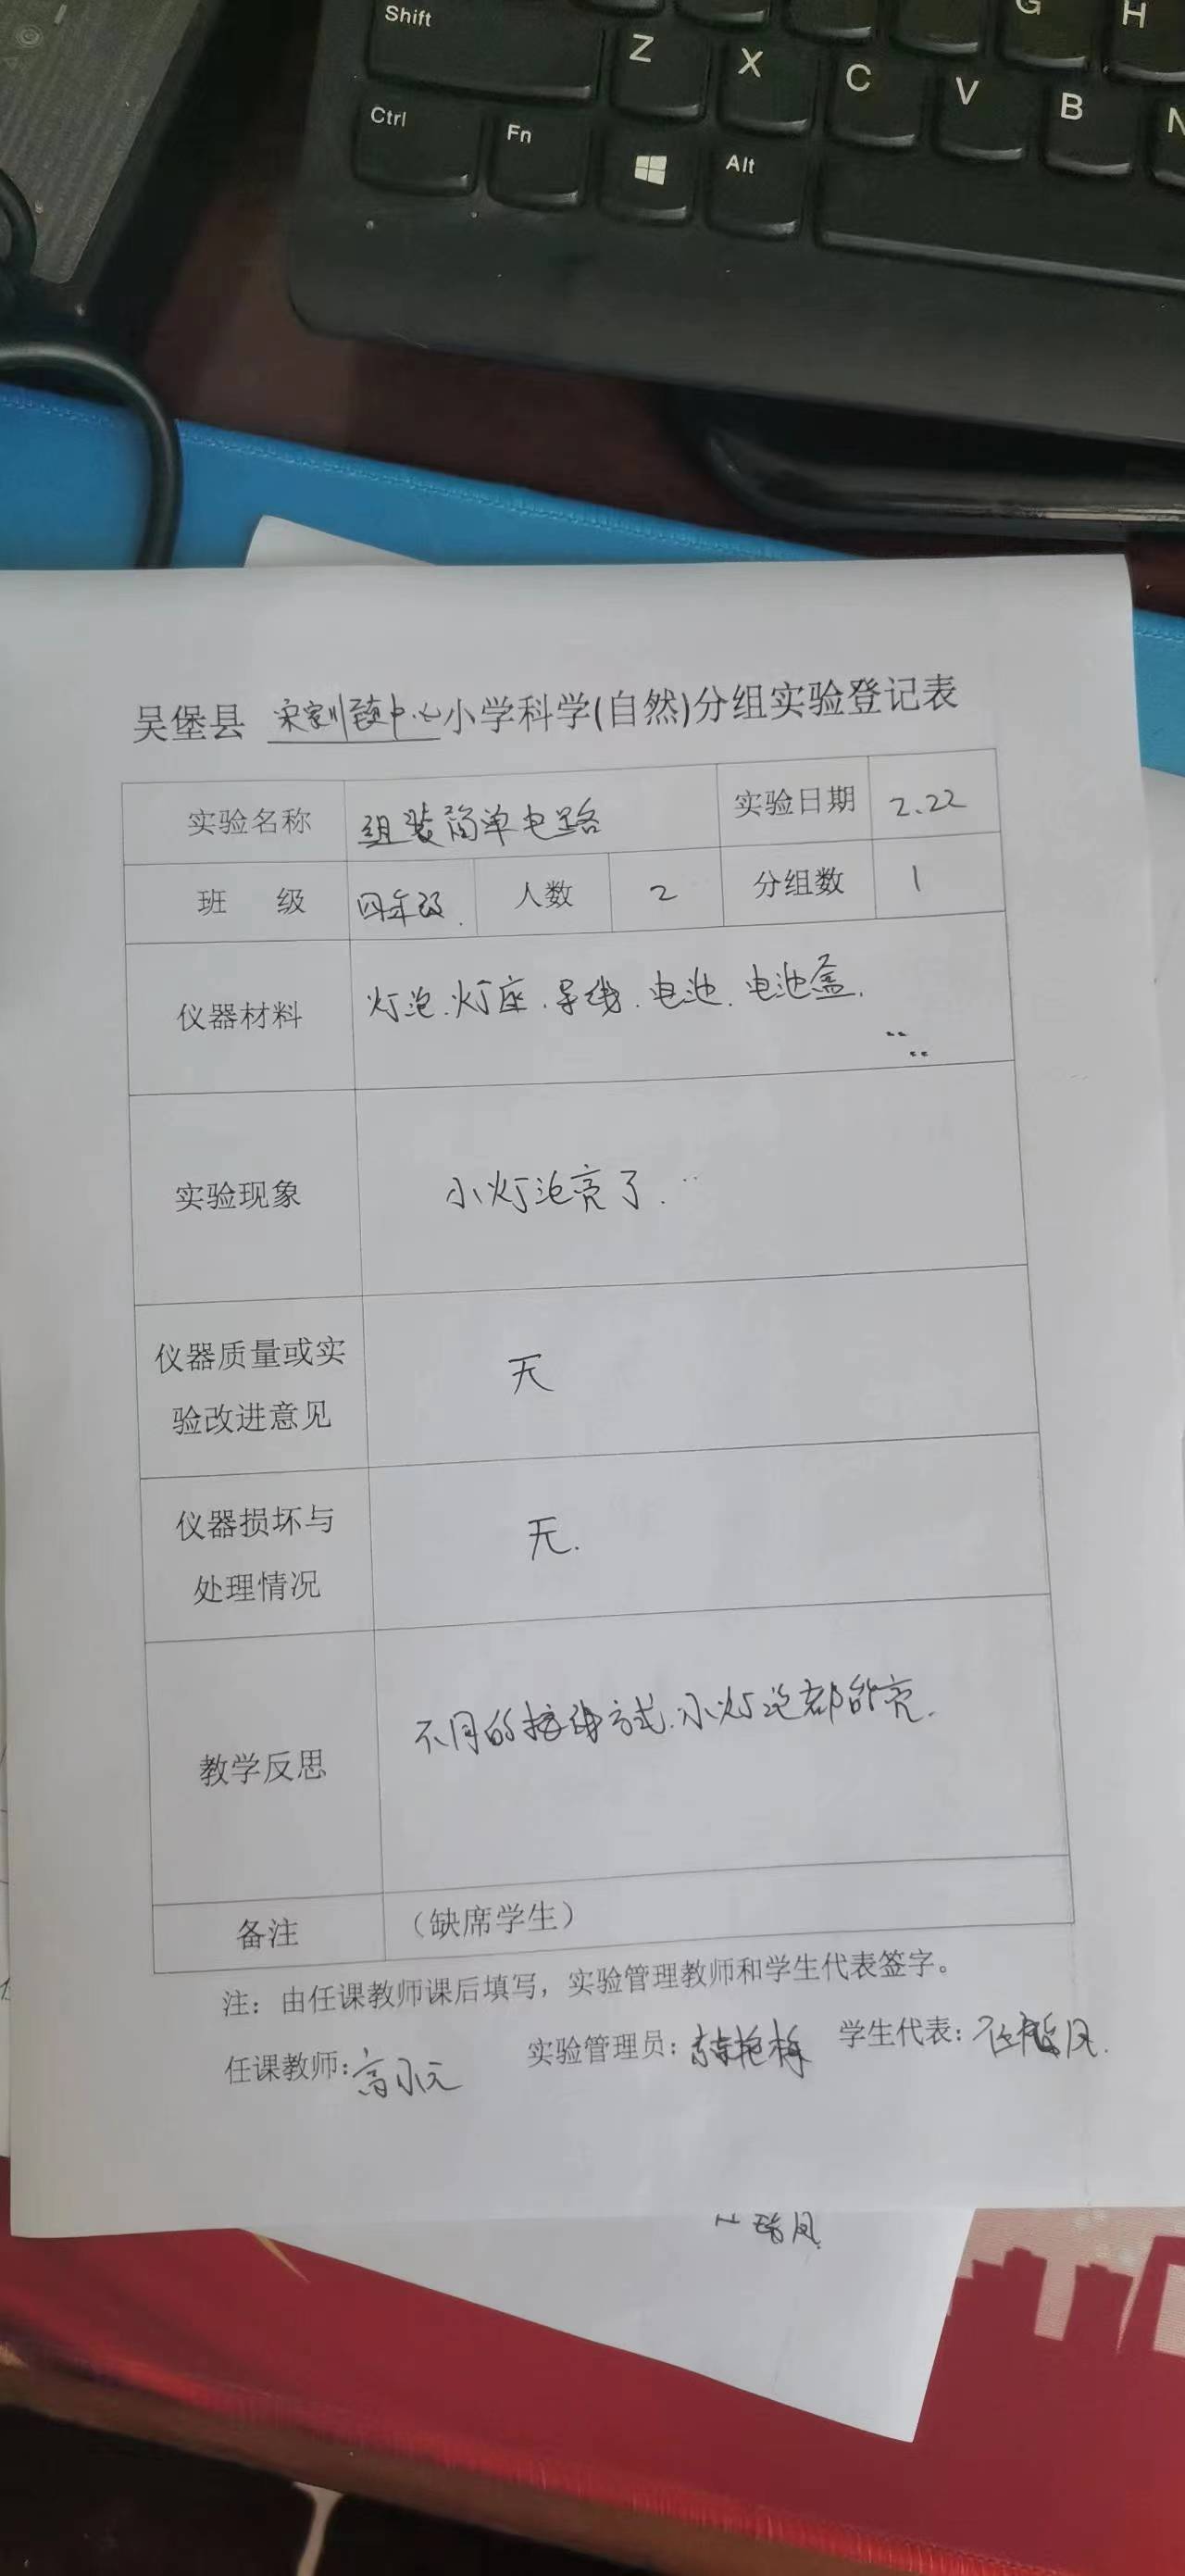 Shift
Z X C V B N
G H
Ctrl Fn Alt
吴堡县 宋家川镇中心小学科学(自然)分组实验登记表
实验名称 组装简单电路 实验日期 2.22
班 级 四年级. 人数 2 分组数 1
仪器材料 灯泡.灯座.导线.电池.电池盒.
实验现象 小灯泡亮了.
仪器质量或实
验改进意见 无
仪器损坏与
处理情况 无.
教学反思 不同的接线方式.小灯泡都能亮.
备注 （缺席学生）
注：由任课教师课后填写，实验管理教师和学生代表签字。
任课教师: 实验管理员: 学生代表: